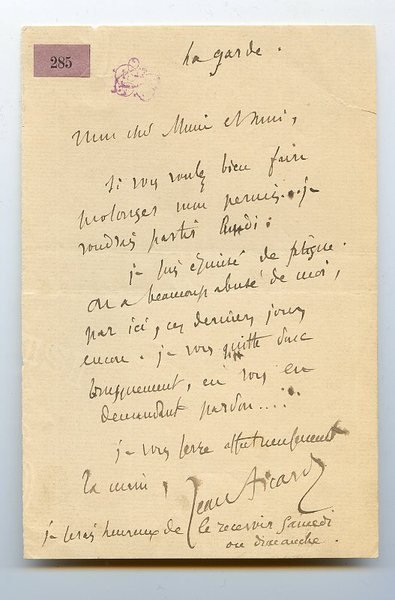 285
La garde.
Mon cher Maire et ami,
Si vous voulez bien faire
prolonger mon permis... je
voudrais partir lundi.
je suis épuisé de fatigue.
on a beaucoup abusé de moi,
par ici, ces derniers jours
encore. je vous quitte donc
brusquement, en vous en
demandant pardon....
je vous serre affectueusement
la main,
Jean Aicard
je serais heureux de le recevoir samedi
ou dimanche.